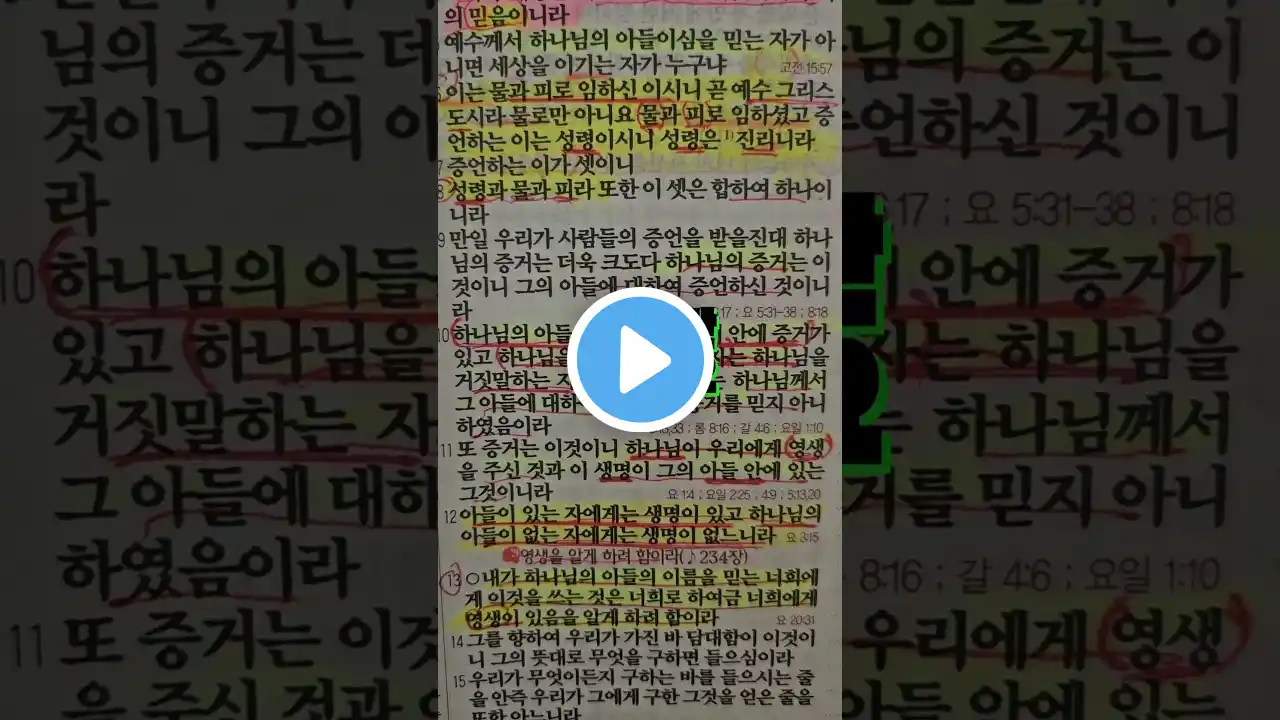 의 믿음이니라
예수께서 하나님의 아들이심을 믿는 자가 아
니면 세상을 이기는 자가 누구냐 고전 15:57
이는 물과 피로 임하신 이시니 곧 예수 그리스
도시라 물로만 아니요 물과 피로 임하셨고 증
언하는 이는 성령이시니 성령은 1) 진리니라
7 증언하는 이가 셋이니
8 성령과 물과 피라 또한 이 셋은 합하여 하나이
니라
9 만일 우리가 사람들의 증언을 받을진대 하나
님의 증거는 더욱 크도다 하나님의 증거는 이
것이니 그의 아들에 대하여 증언하신 것이니
라 17 ; 요 5:31-38 ; 8:18
10 하나님의 아들 안에 증거가
있고 하나님을 자는 하나님을
거짓말하는 자 는 하나님께서
그 아들에 대하 거를 믿지 아니
하였음이라 33 ; 롬 8:16 ; 갈 4:6 ; 요일 1:10
11 또 증거는 이것이니 하나님이 우리에게 영생
을 주신 것과 이 생명이 그의 아들 안에 있는
그것이니라 요 1:4 ; 요일 2:25 ; 4:9 ; 5:13,20
12 아들이 있는 자에게는 생명이 있고 하나님의
아들이 없는 자에게는 생명이 없느니라 요 3:15
영생을 알게 하려 함이라(♪ 234장)
13 ○내가 하나님의 아들의 이름을 믿는 너희에
게 이것을 쓰는 것은 너희로 하여금 너희에게
영생이 있음을 알게 하려 함이라 요 20:31
14 그를 향하여 우리가 가진 바 담대함이 이것이
니 그의 뜻대로 무엇을 구하면 들으심이라
15 우리가 무엇이든지 구하는 바를 들으시는 줄
을 안즉 우리가 그에게 구한 그것을 얻은 줄을
또한 아느니라